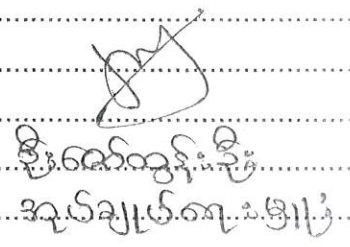 ဦးကျော်ထွန်းဦး
အုပ်ချုပ်ရေးမှူး